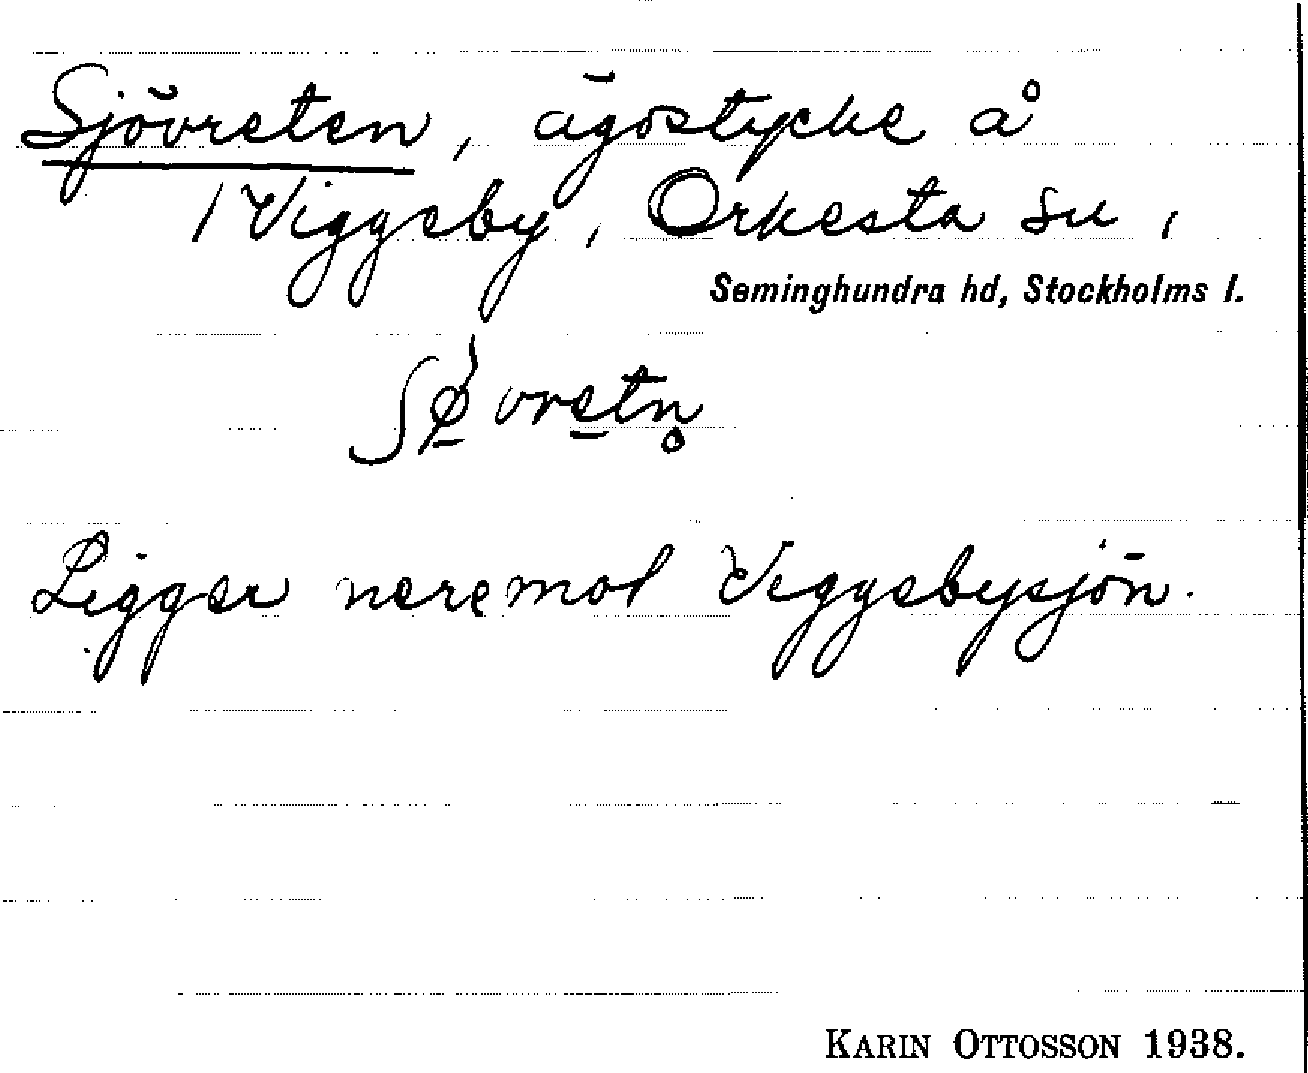 Sjövreten, ägostycke å
/ Viggeby, Orkesta sn,
Seminghundra hd, Stockholms l.
ʃø̠̀vre̠tn̥
Ligger nere mot Viggebysjön.
KARIN OTTOSSON 1938.